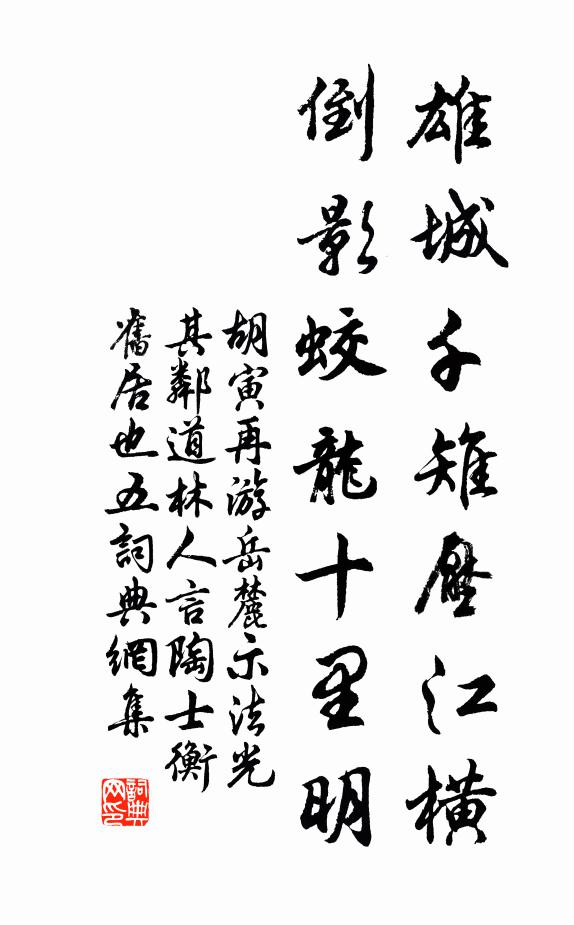 雄城千雉壓江橫
倒影蛟龍十里明
胡寅再游岳麓示法光
其鄰道林人言陶士衡
舊居也五詞典網集
詞典網印